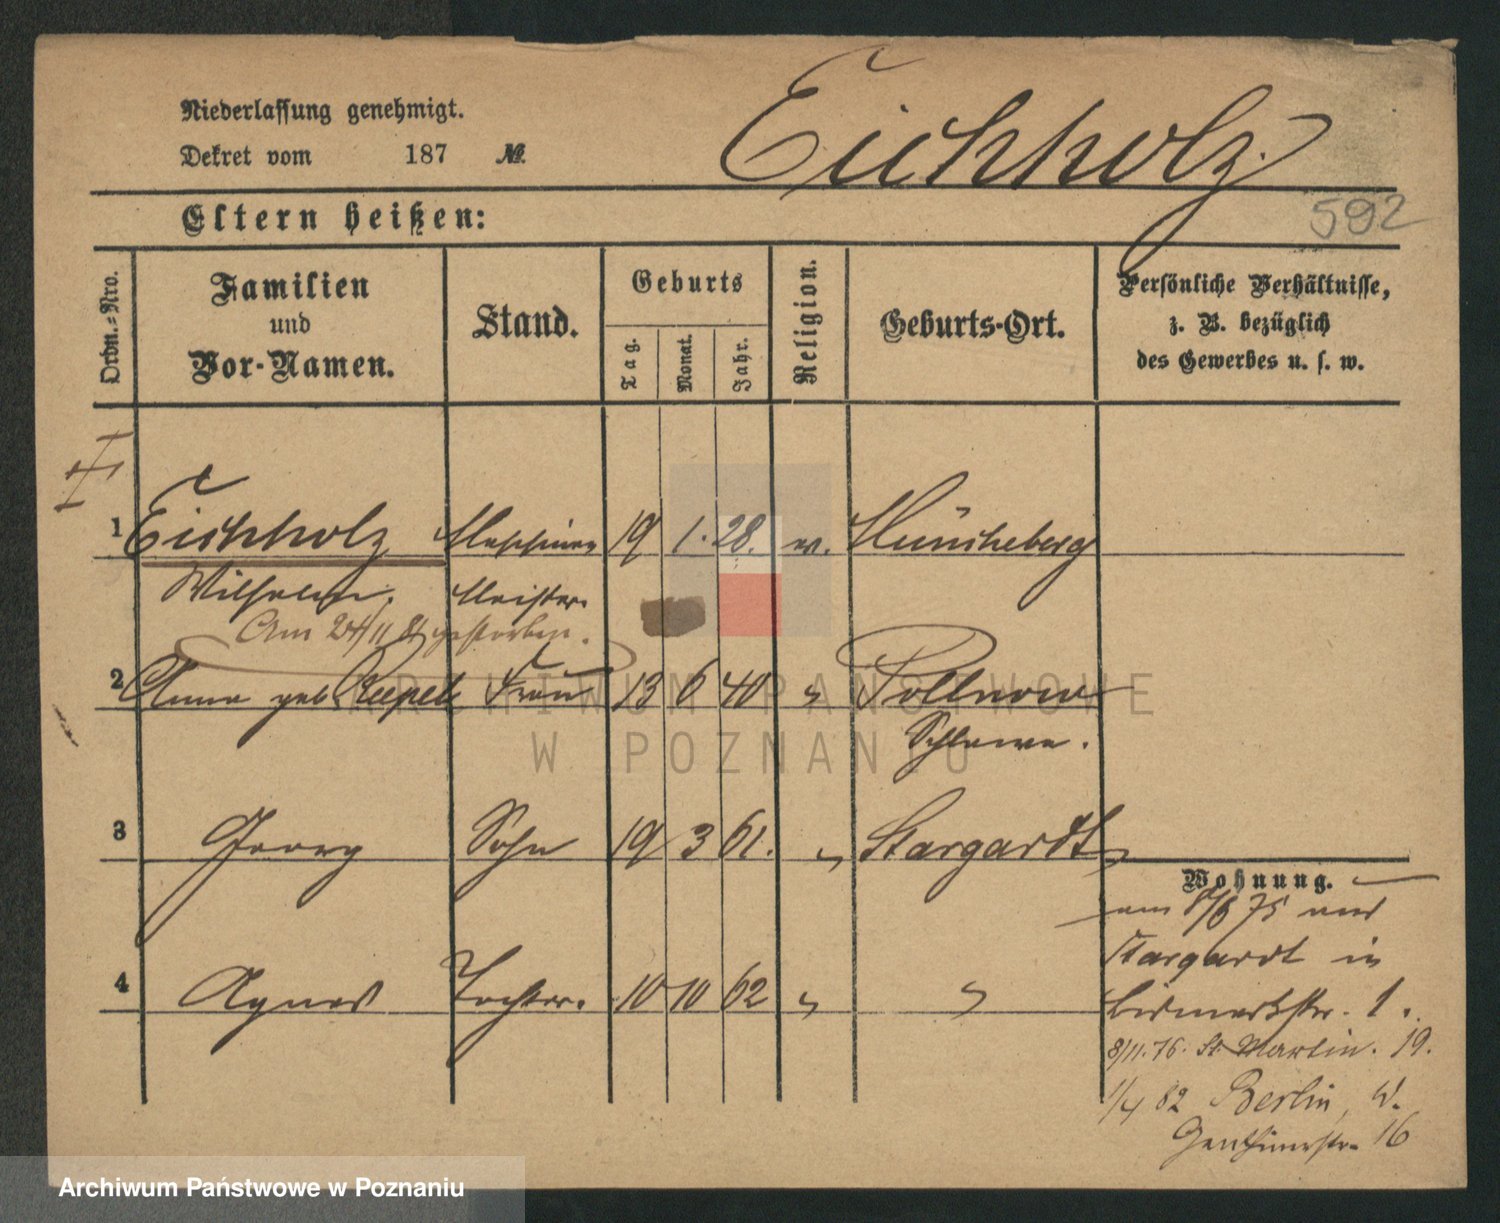 Niederlassung genehmigt.
Dekret vom 187 №.
Eichholz.
Eltern heißen:
592
Ordn.-Nro.
Familien
und
Vor-Namen.
Stand.
Geburts
Tag.
Monat.
Jahr.
Religion.
Geburts-Ort.
Persönliche Verhältnisse,
z. B. bezüglich
des Gewerbes u. s. w.
1 Eichholz Maschinen 19 1. 28. ev. Müncheberg
Wilhelm. Meister
Am 24/11 81 gestorben.
2 Anna geb Frau 13 6 40 " Pollnow
Schlawe.
3 Georg Sohn 19 3 61. " Stargardt
4 Agnes Tochter. 10 10 62 " "
Wohnung.
am 8/6 75 aus
Stargardt in
Bismarkstr. 1.
8/11.76. St. Martin. 19.
1/4 82 Berlin, W.
Genthinerstr. 16
ARCHIWUM PAŃSTWOWE
W POZNANIU
Archiwum Państwowe w Poznaniu